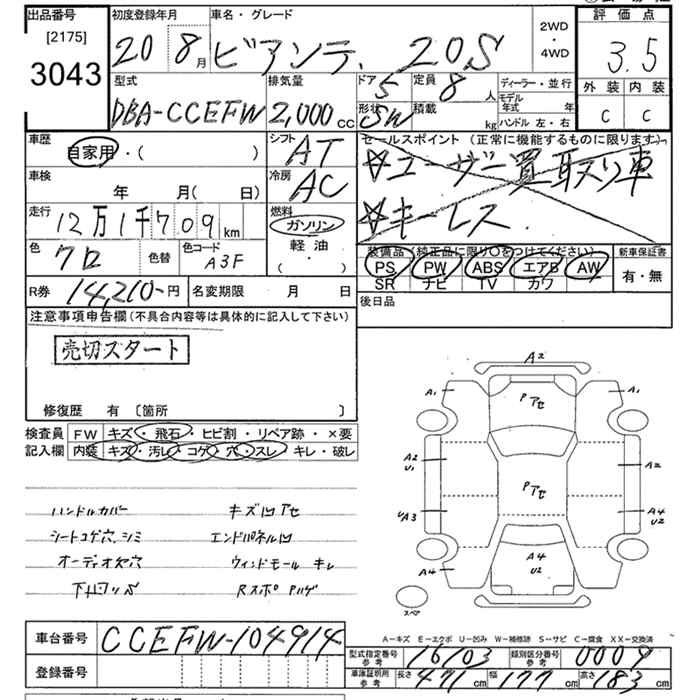 出品番号 初度登録年月 車名・グレード 2WD・4WD 評価点
[2175]
3043 20 8月 ビアンテ 20S 3.5
型式 排気量 ドア 定員 ディーラー・並行 外装 内装
DBA-CCEFW 2,000cc 5 8人 モデル年式 年 C C
形状 SW 積載 kg ハンドル 左・右
車歴 シフト セールスポイント (正常に機能するものに限ります)
自家用・( ) AT ☆ユーザー買取り車
車検 年 月(日) 冷房 AC
走行 12万1千709km 燃料 ☆キーレス
ガソリン
軽油
・( )
色 クロ 色替 色コード A3F
装備品(純正品に限り○をつけてください) 新車保証書
PS PW ABS エアB AW 有・無
SR ナビ TV カワ
R券 14,210-円 名変期限 月 日 後日品
注意事項申告欄(不具合内容等は具体的に記入して下さい)
売切スタート
修復歴 有 〔箇所 〕
検査員 FW キズ・飛石・ヒビ割・リペア跡・×要
記入欄 内装 キズ・汚レ・コゲ・穴・スレ・キレ・破レ
ハンドルカバー キズ凹アセ
シートコゲ穴、シミ エンドパネル凹
オーディオ欠穴 ウィンドモール キレ
下廻りS Rスポ Pハゲ
A2
A1 A1
Pアセ
A2
U1
A2
Pアセ
UA3 A4
U2
A4
A4
U2
スペア
A-キズ E-エクボ U-凹み W-補修跡 S-サビ C-腐食 XX-交換済
車台番号 CCEFW-104914
型式指定番号 参考 16103 類別区分番号 参考 0009
登録番号
車庫証明用 参考 長さ 471cm 幅 177cm 高さ 183cm